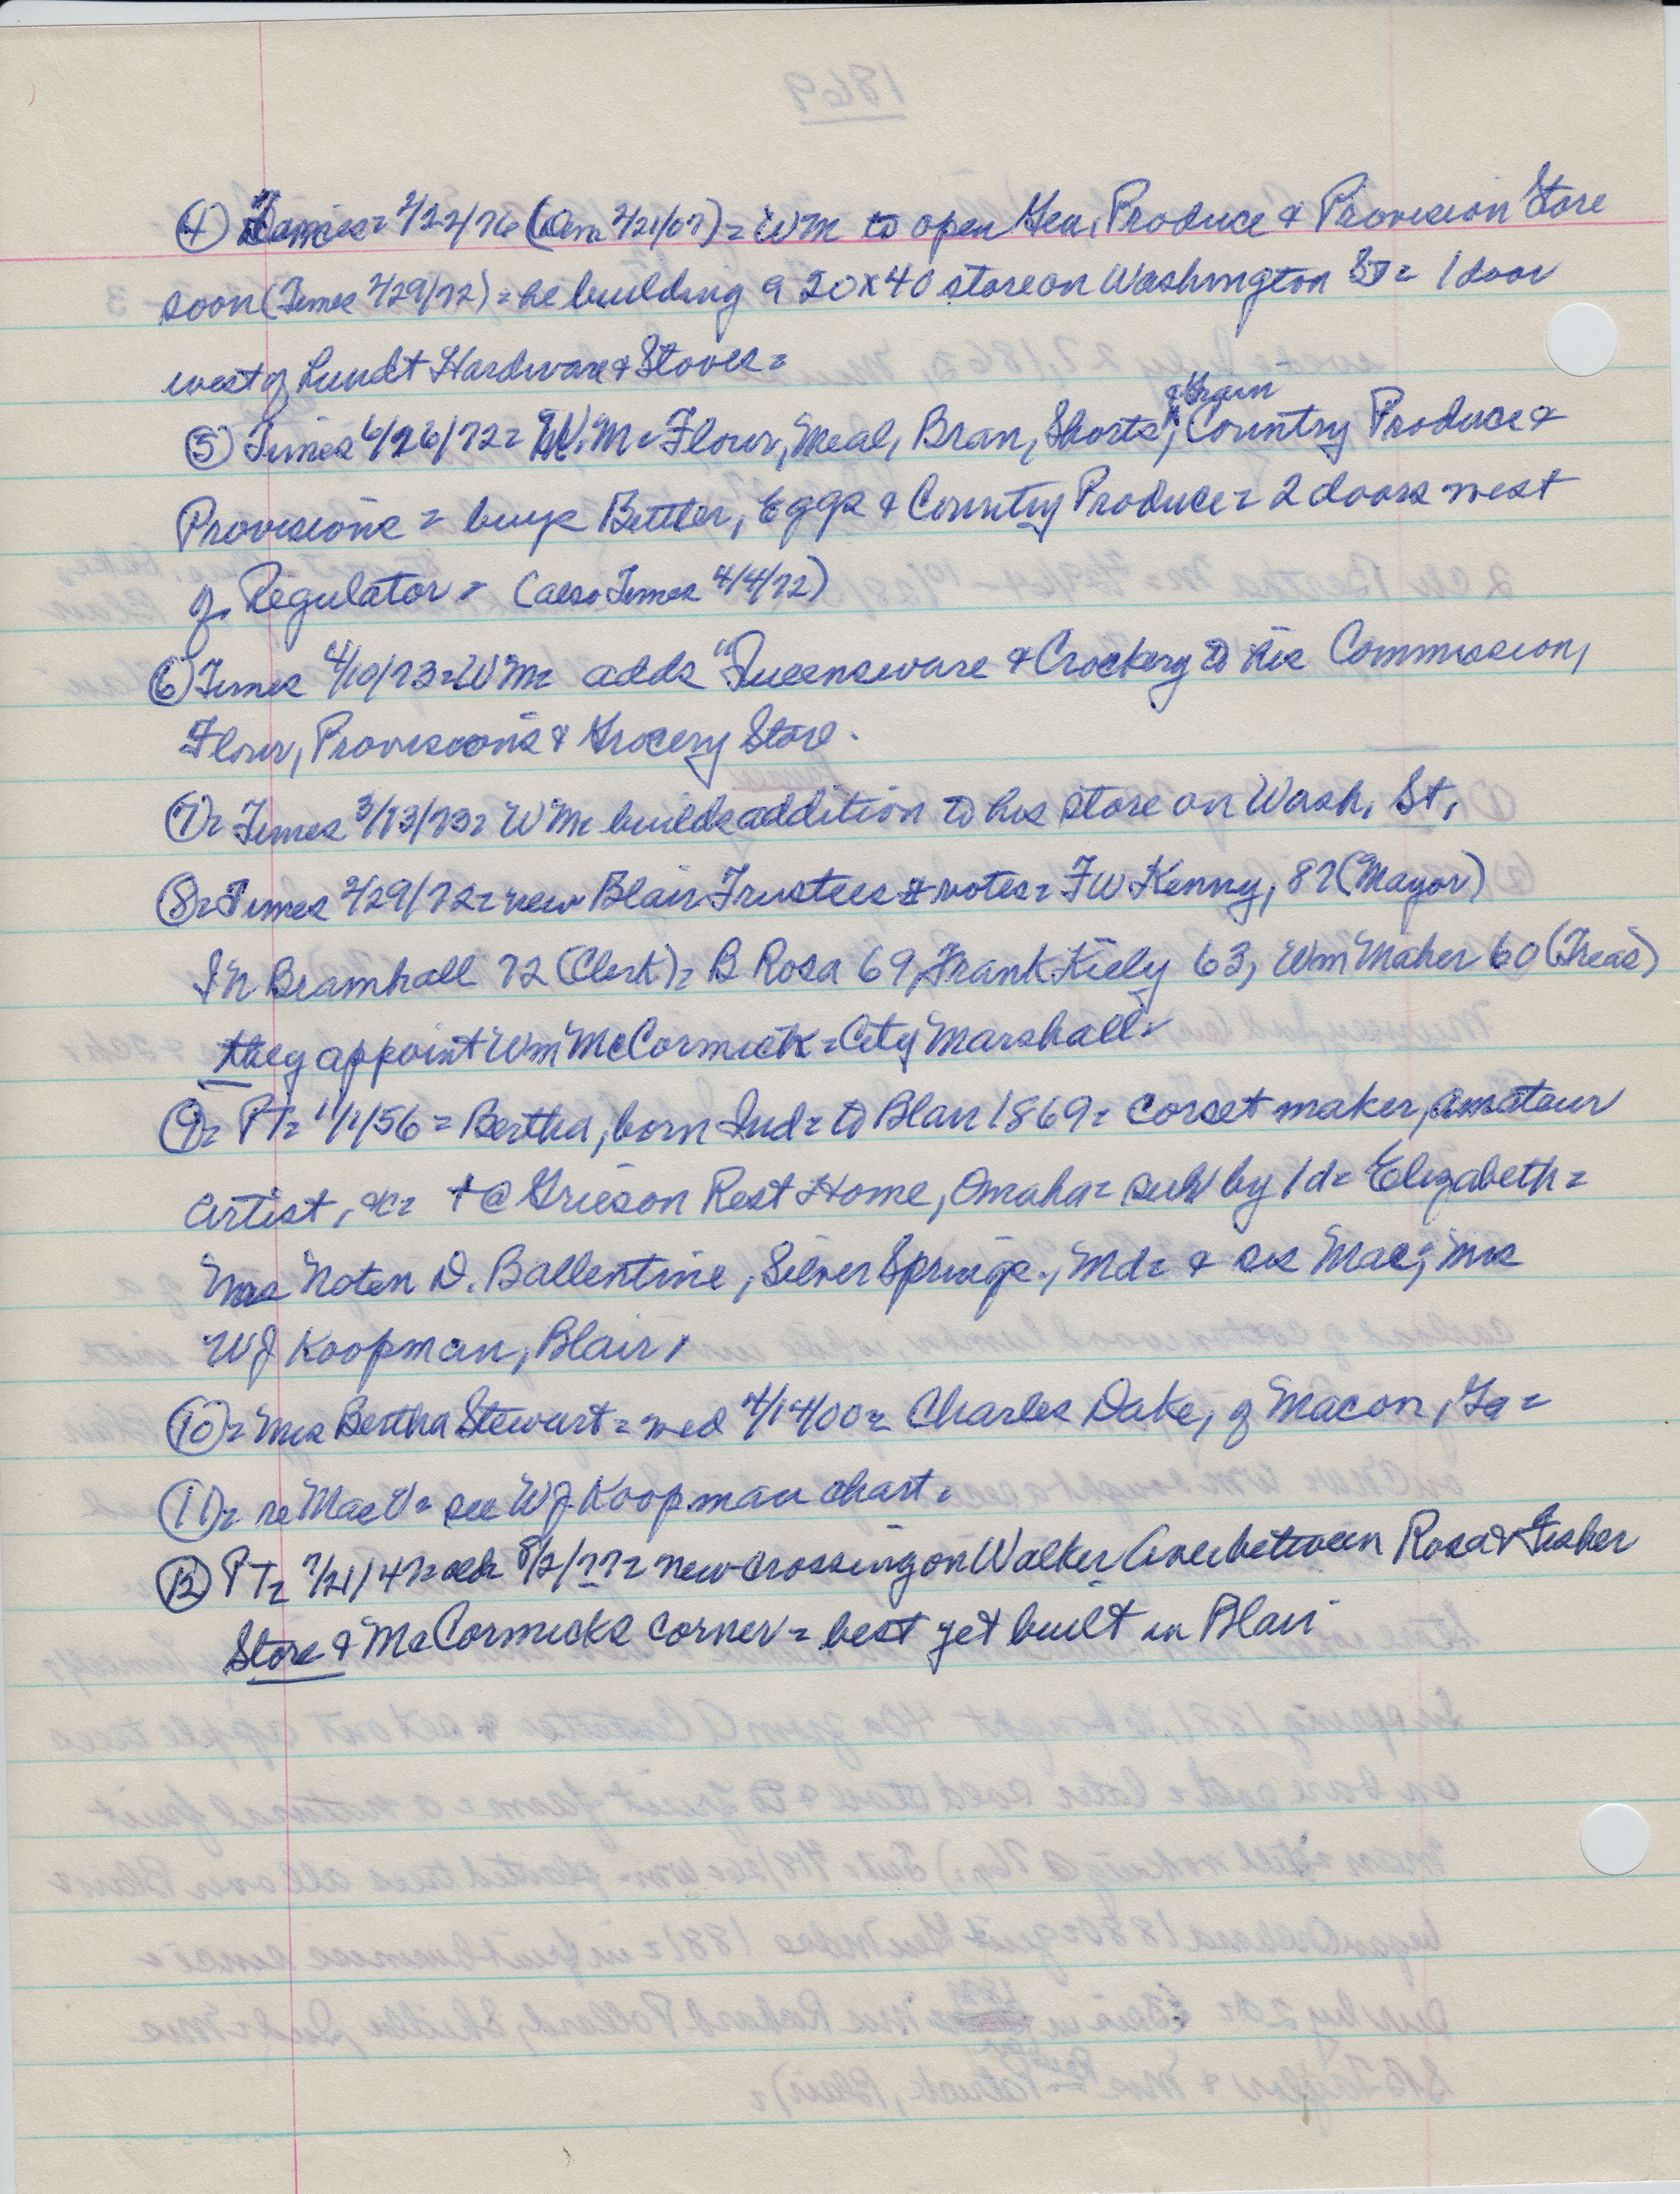 1869
④ Times= 2/22/76 (Dem 2/21/07)= Wm to open Gen. Produce & Provision Store
soon (Times 2/29/72)= he building a 20x40 store on Washington St= 1 door
west of Lundt Hardware & Stoves=
⑤ Times 6/26/72= W.M= Flour, Meal, Bran, Shorts, & Grain, Country Produce &
Provisions = buys Butter, Eggs & Country Produce= 2 doors west
of Regulator= (also Times 4/4/72)
⑥ Times 4/10/73= Wm= adds "Queensware & Crockery to his Commission,
Flour, Provisions & Grocery Store.
⑦= Times 3/13/73= Wm builds addition to his store on Wash. St.
⑧= Times 2/29/72= new Blair Trustees & votes= FW Kenny, 87 (Mayor)
Bramhall 72 (Clerk)= B Rosa 69, Frank Kiely 63, Wm Maher 60 (Treas)
they appoint Wm McCormick= City Marshall=
⑨= PT= 1/1/56= Bertha, born Ind= to Blair 1869= corset maker, amateur
artist, = + @ Grieson Rest Home, Omaha= surv by 1d= Elizabeth=
Mrs Noten D. Ballentine, Silver Springs., Md= & sis Mae; Mrs
WJ Koopman, Blair,
⑩= Mrs Bertha Stewart= wed 4/14/00= Charles Dake, of Macon, Ga=
⑪= re Mae V= see WJ Koopman chart=
⑫ PT= 7/21/47= 8/2/77= new crossing on Walker Ave between Rosa & Fisher
Store & McCormicks corner= best yet built in Blair